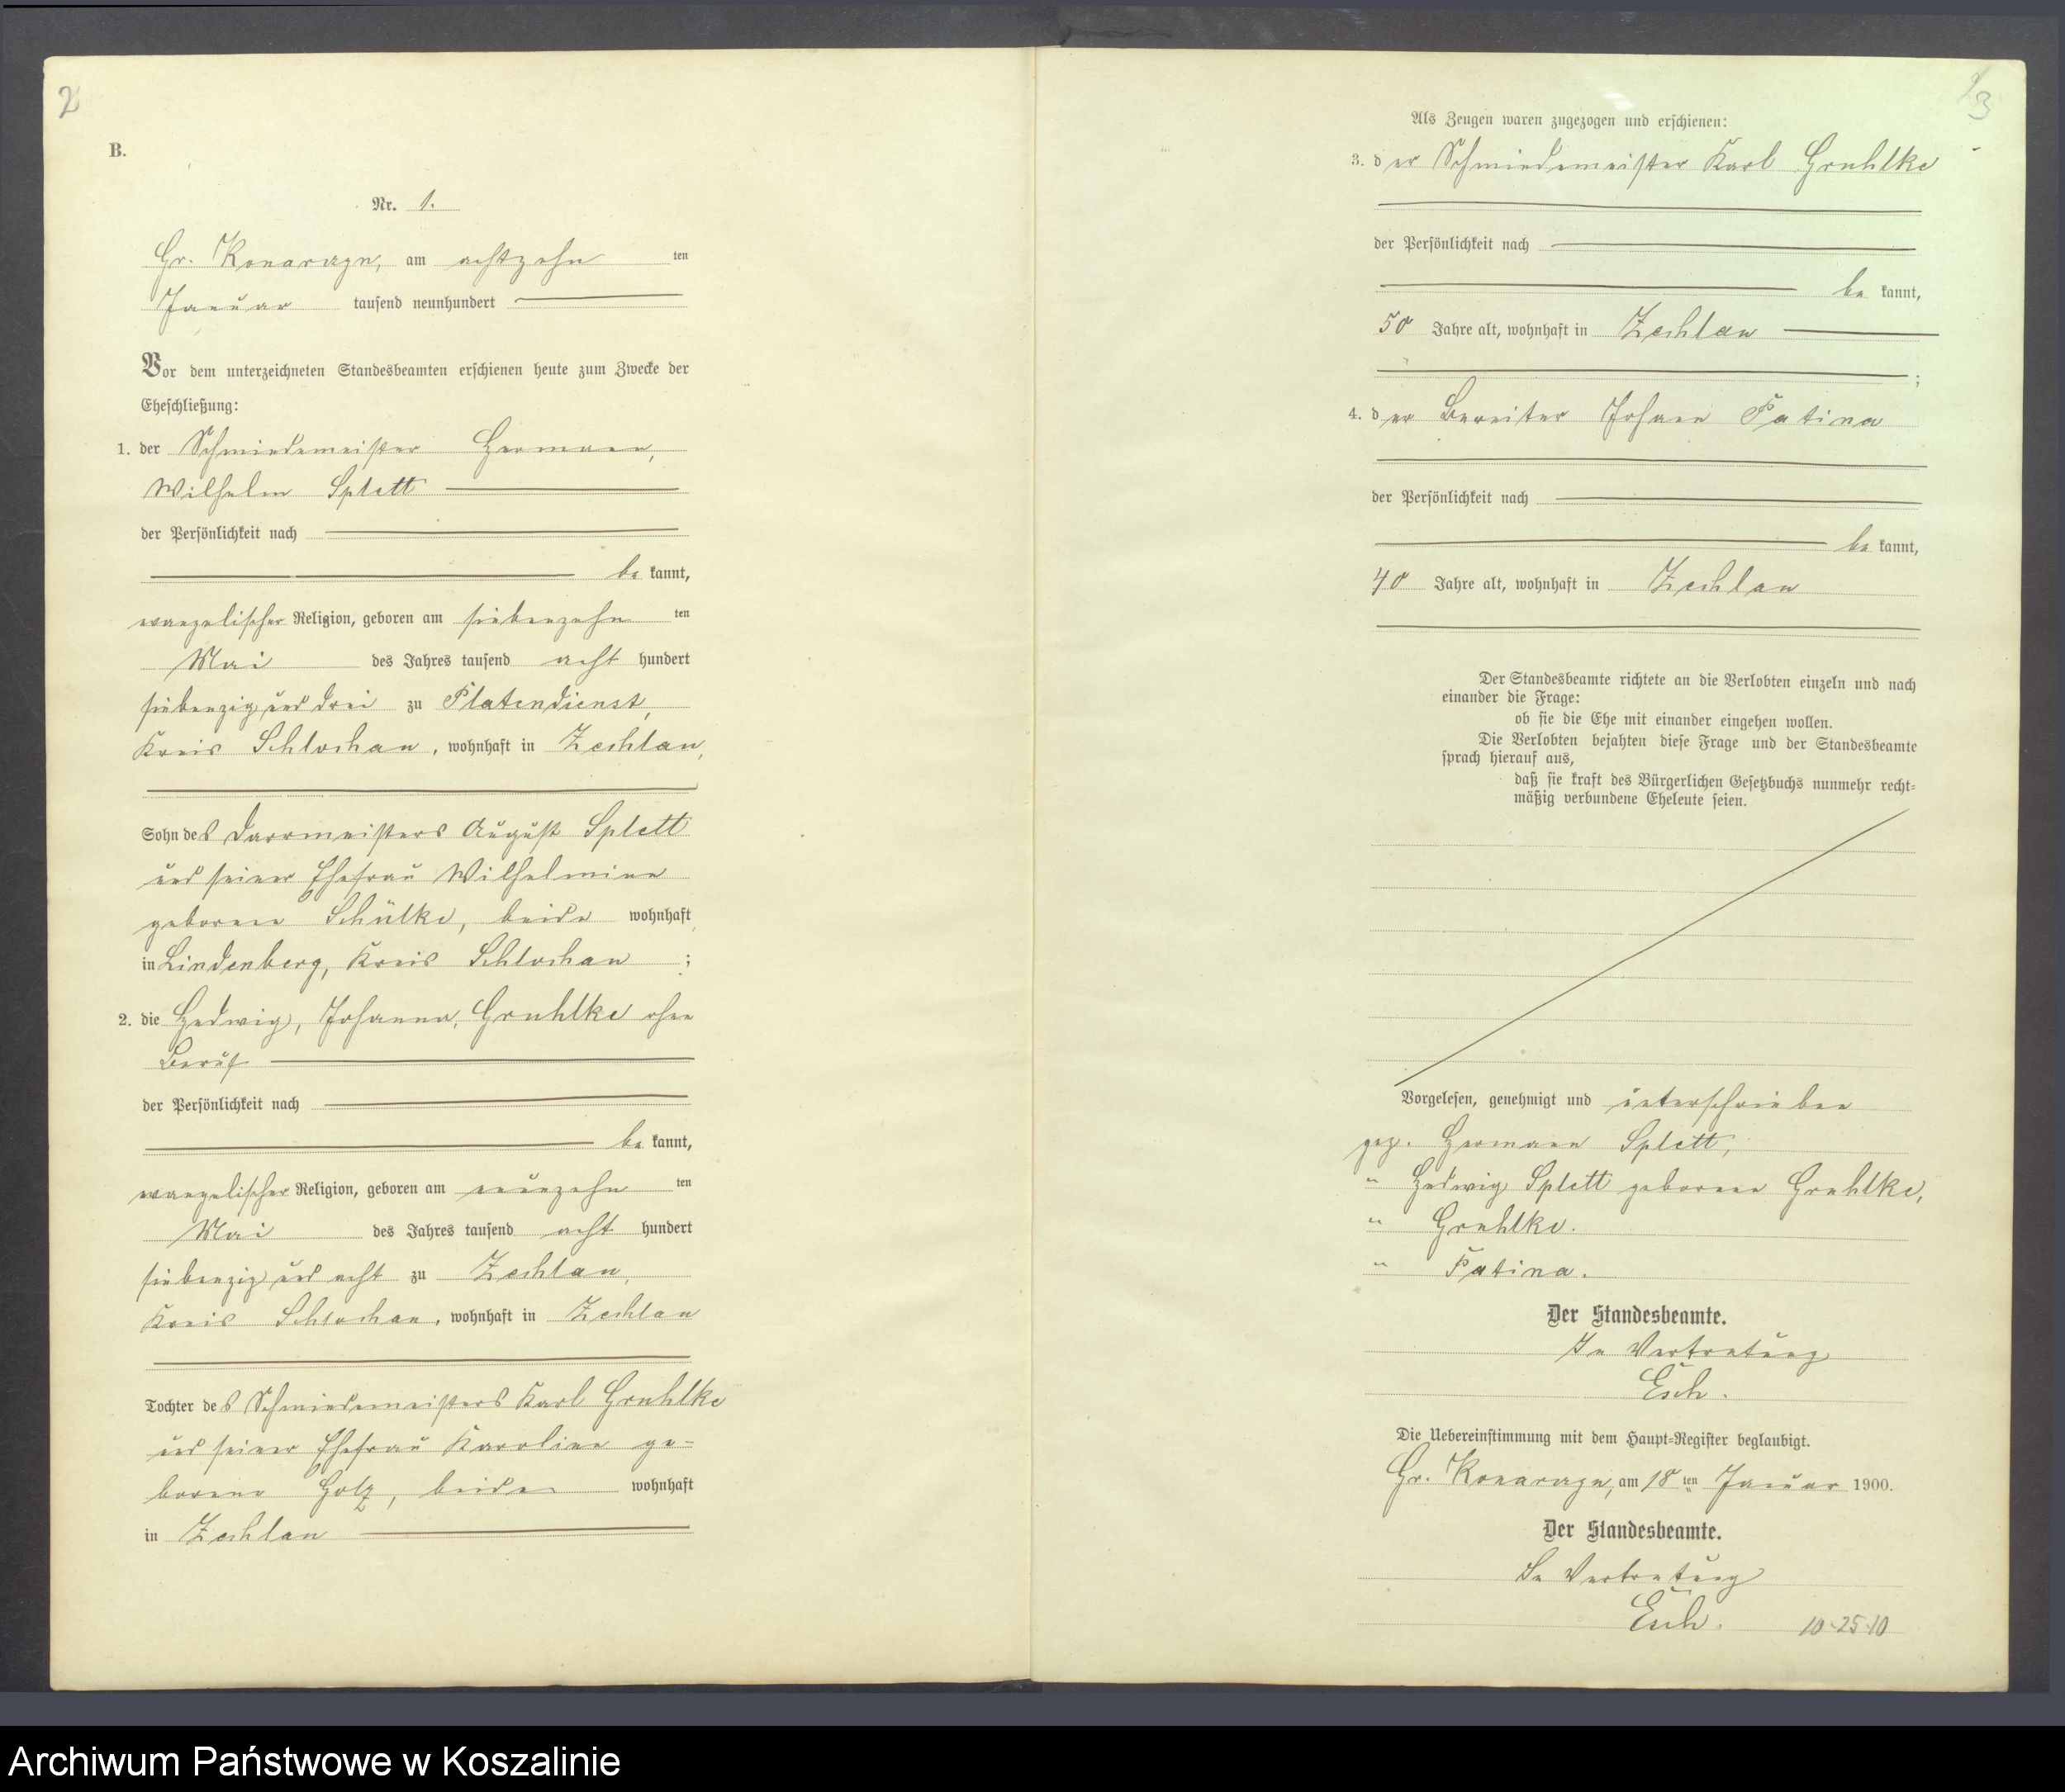 2
B.
Nr. 1.
Gr. Konarczyn, am achtzehn ten
Januar tausend neunhundert
Vor dem unterzeichneten Standesbeamten erschienen heute zum Zwecke der
Eheschließung:
1. der Schmiedemeister Hermann,
Wilhelm Splett
der Persönlichkeit nach
be kannt,
evangelischer Religion, geboren am siebenzehn ten
Mai des Jahres tausend acht hundert
siebenzig und drei zu Platendienst,
Kreis Schlochau, wohnhaft in Zechlau,
Sohn des Darrmeisters August Splett
und seiner Ehefrau Wilhelmine
geborene Schülke, beide wohnhaft
in Lindenberg, Kreis Schlochau ;
2. die Hedwig, Johanna, Gruhlke ohne
Beruf
der Persönlichkeit nach
be kannt,
evangelischer Religion, geboren am neunzehn ten
Mai des Jahres tausend acht hundert
siebenzig und acht zu Zechlau,
Kreis Schlochau, wohnhaft in Zechlau
Tochter des Schmiedemeisters Karl Gruhlke
und seiner Ehefrau Karoline ge-
borene Golz, beide wohnhaft
in Zechlau
3
Als Zeugen waren zugezogen und erschienen:
3. der Schmiedemeister Karl Gruhlke
der Persönlichkeit nach
be kannt,
50 Jahre alt, wohnhaft in Zechlau
;
4. der Bereiter Johann Patina
der Persönlichkeit nach
be kannt,
40 Jahre alt, wohnhaft in Zechlau
Der Standesbeamte richtete an die Verlobten einzeln und nach
einander die Frage:
ob sie die Ehe mit einander eingehen wollen.
Die Verlobten bejahten diese Frage und der Standesbeamte
sprach hierauf aus,
daß sie kraft des Bürgerlichen Gesetzbuchs nunmehr recht=
mäßig verbundene Eheleute seien.
Vorgelesen, genehmigt und unterschrieben
gez. Hermann Splett,
" Hedwig Splett geborene Gruhlke,
" Gruhlke.
" Patina.
Der Standesbeamte.
In Vertretung
Esch.
Die Uebereinstimmung mit dem Haupt=Register beglaubigt.
Gr. Konarczyn, am 18 ten Januar 1900.
Der Standesbeamte.
In Vertretung
Esch.
10-25-10
Archiwum Państwowe w Koszalinie